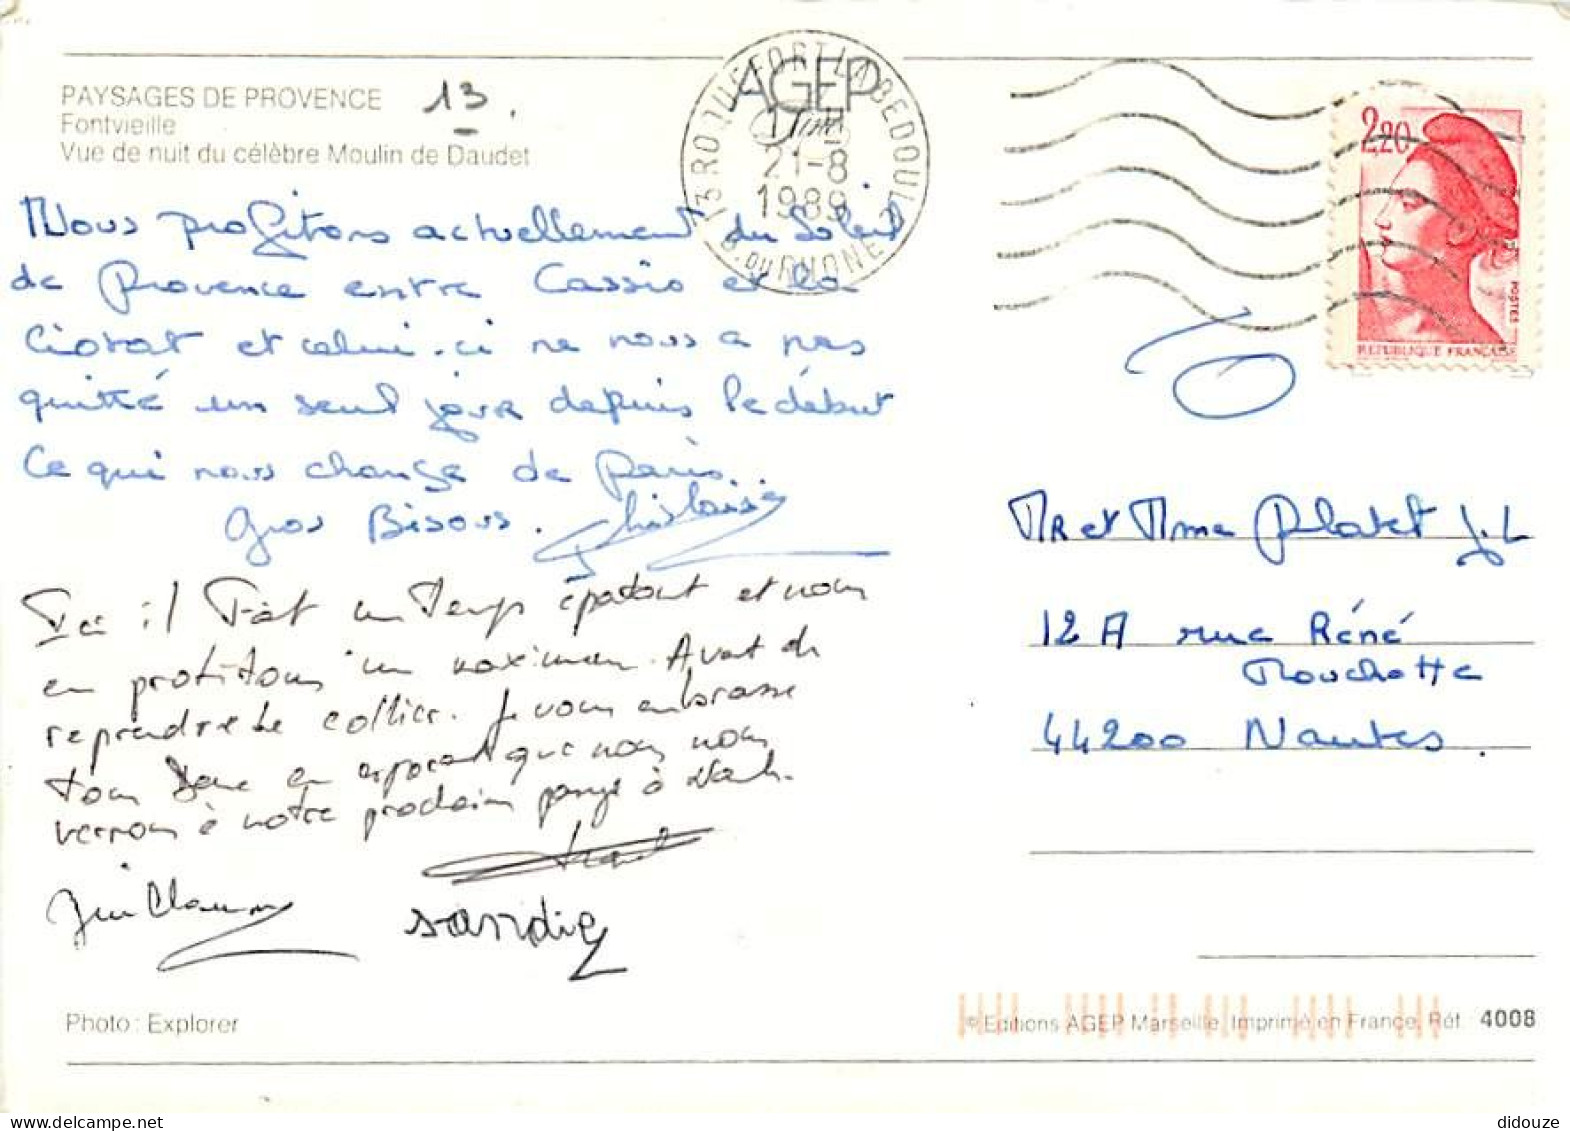 PAYSAGES DE PROVENCE 13.
Fontvieille
Vue de nuit du célèbre Moulin de Daudet
AGEP
13 ROQUEFORT LA BEDOULE
B. DU RHONE
17H
21-8
1989
2,20
POSTES
REPUBLIQUE FRANÇAISE
Nous profitons actuellement du Soleil
de Provence entre Cassis et la
Ciotat et celui.ci ne nous a pas
quitté un seul jour depuis le début
Ce qui nous change de Paris.
Gros Bisous. Ghislaine
Ici il Fait un Temps épatant et nous
en profitons un maximum. Avant de
reprendre le collier. Je vous embrasse
tous en espérant que nous nous
verrons à notre prochain passage à
Jean Claude
Sandie
MR et Mme Platet J.L
12 A rue Réné
Mouchotte
44200 Nantes.
Photo : Explorer
© Editions AGEP Marseille, Imprimé en France, Réf. 4008
didouze